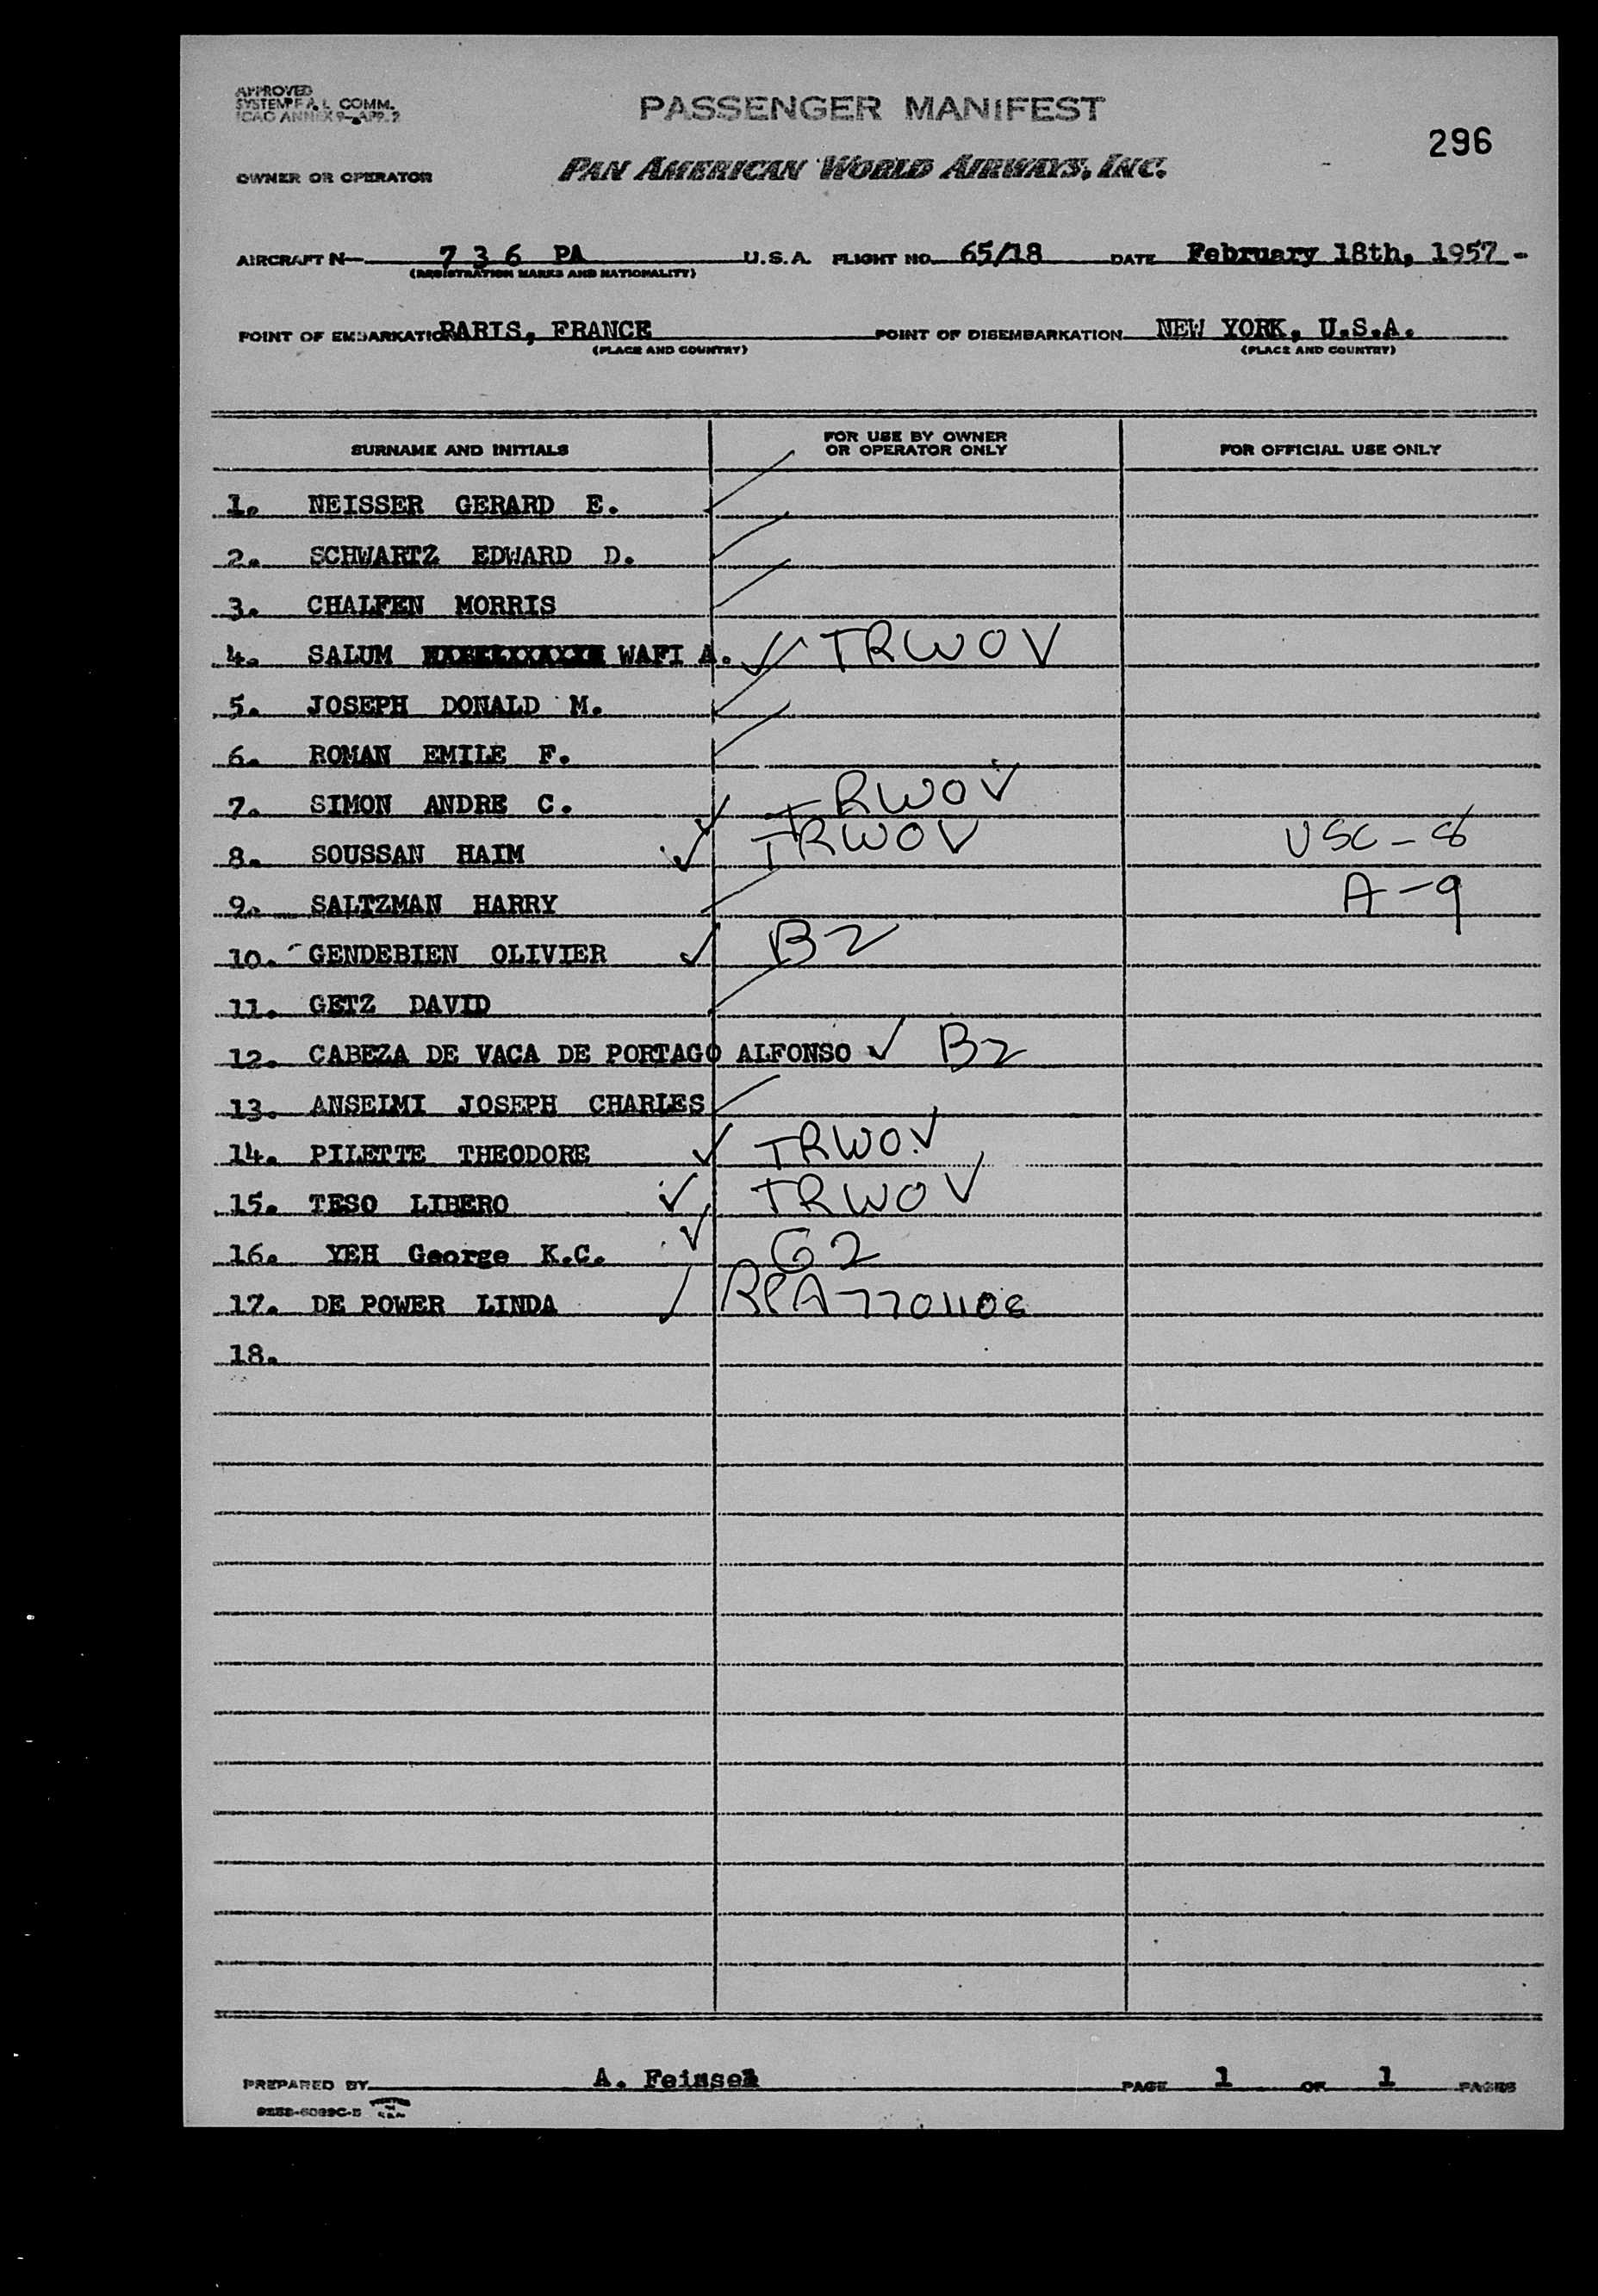 APPROVED
SYSTEM F.A.L. COMM.
ICAO ANNEX 9-APP. 2
PASSENGER MANIFEST
296
OWNER OR OPERATOR PAN AMERICAN WORLD AIRWAYS, INC.
AIRCRAFT N— 7 3 6 PA U.S.A. FLIGHT NO. 65/18 DATE February 18th, 1957 -
(REGISTRATION MARKS AND NATIONALITY)
POINT OF EMBARKATION PARIS, FRANCE POINT OF DISEMBARKATION NEW YORK, U.S.A.
(PLACE AND COUNTRY) (PLACE AND COUNTRY)
SURNAME AND INITIALS FOR USE BY OWNER OR OPERATOR ONLY FOR OFFICIAL USE ONLY
1. NEISSER GERARD E.
2. SCHWARTZ EDWARD D.
3. CHALFEN MORRIS
4. SALUM WAFI A. ✓ TRWOV
5. JOSEPH DONALD M.
6. ROMAN EMILE F.
7. SIMON ANDRE C. ✓ TRWOV
8. SOUSSAN HAIM ✓ TRWOV USC - 8
9. SALTZMAN HARRY A - 9
10. GENDEBIEN OLIVIER ✓ B2
11. GETZ DAVID
12. CABEZA DE VACA DE PORTAGO ALFONSO ✓ B2
13. ANSELMI JOSEPH CHARLES
14. PILETTE THEODORE ✓ TRWOV
15. TESO LIBERO ✓ TRWOV
16. YEH George K.C. ✓ G2
17. DE POWER LINDA ✓
18.
PREPARED BY A. PAGE 1 OF 1 PAGES
PRINTED IN U.S.A.